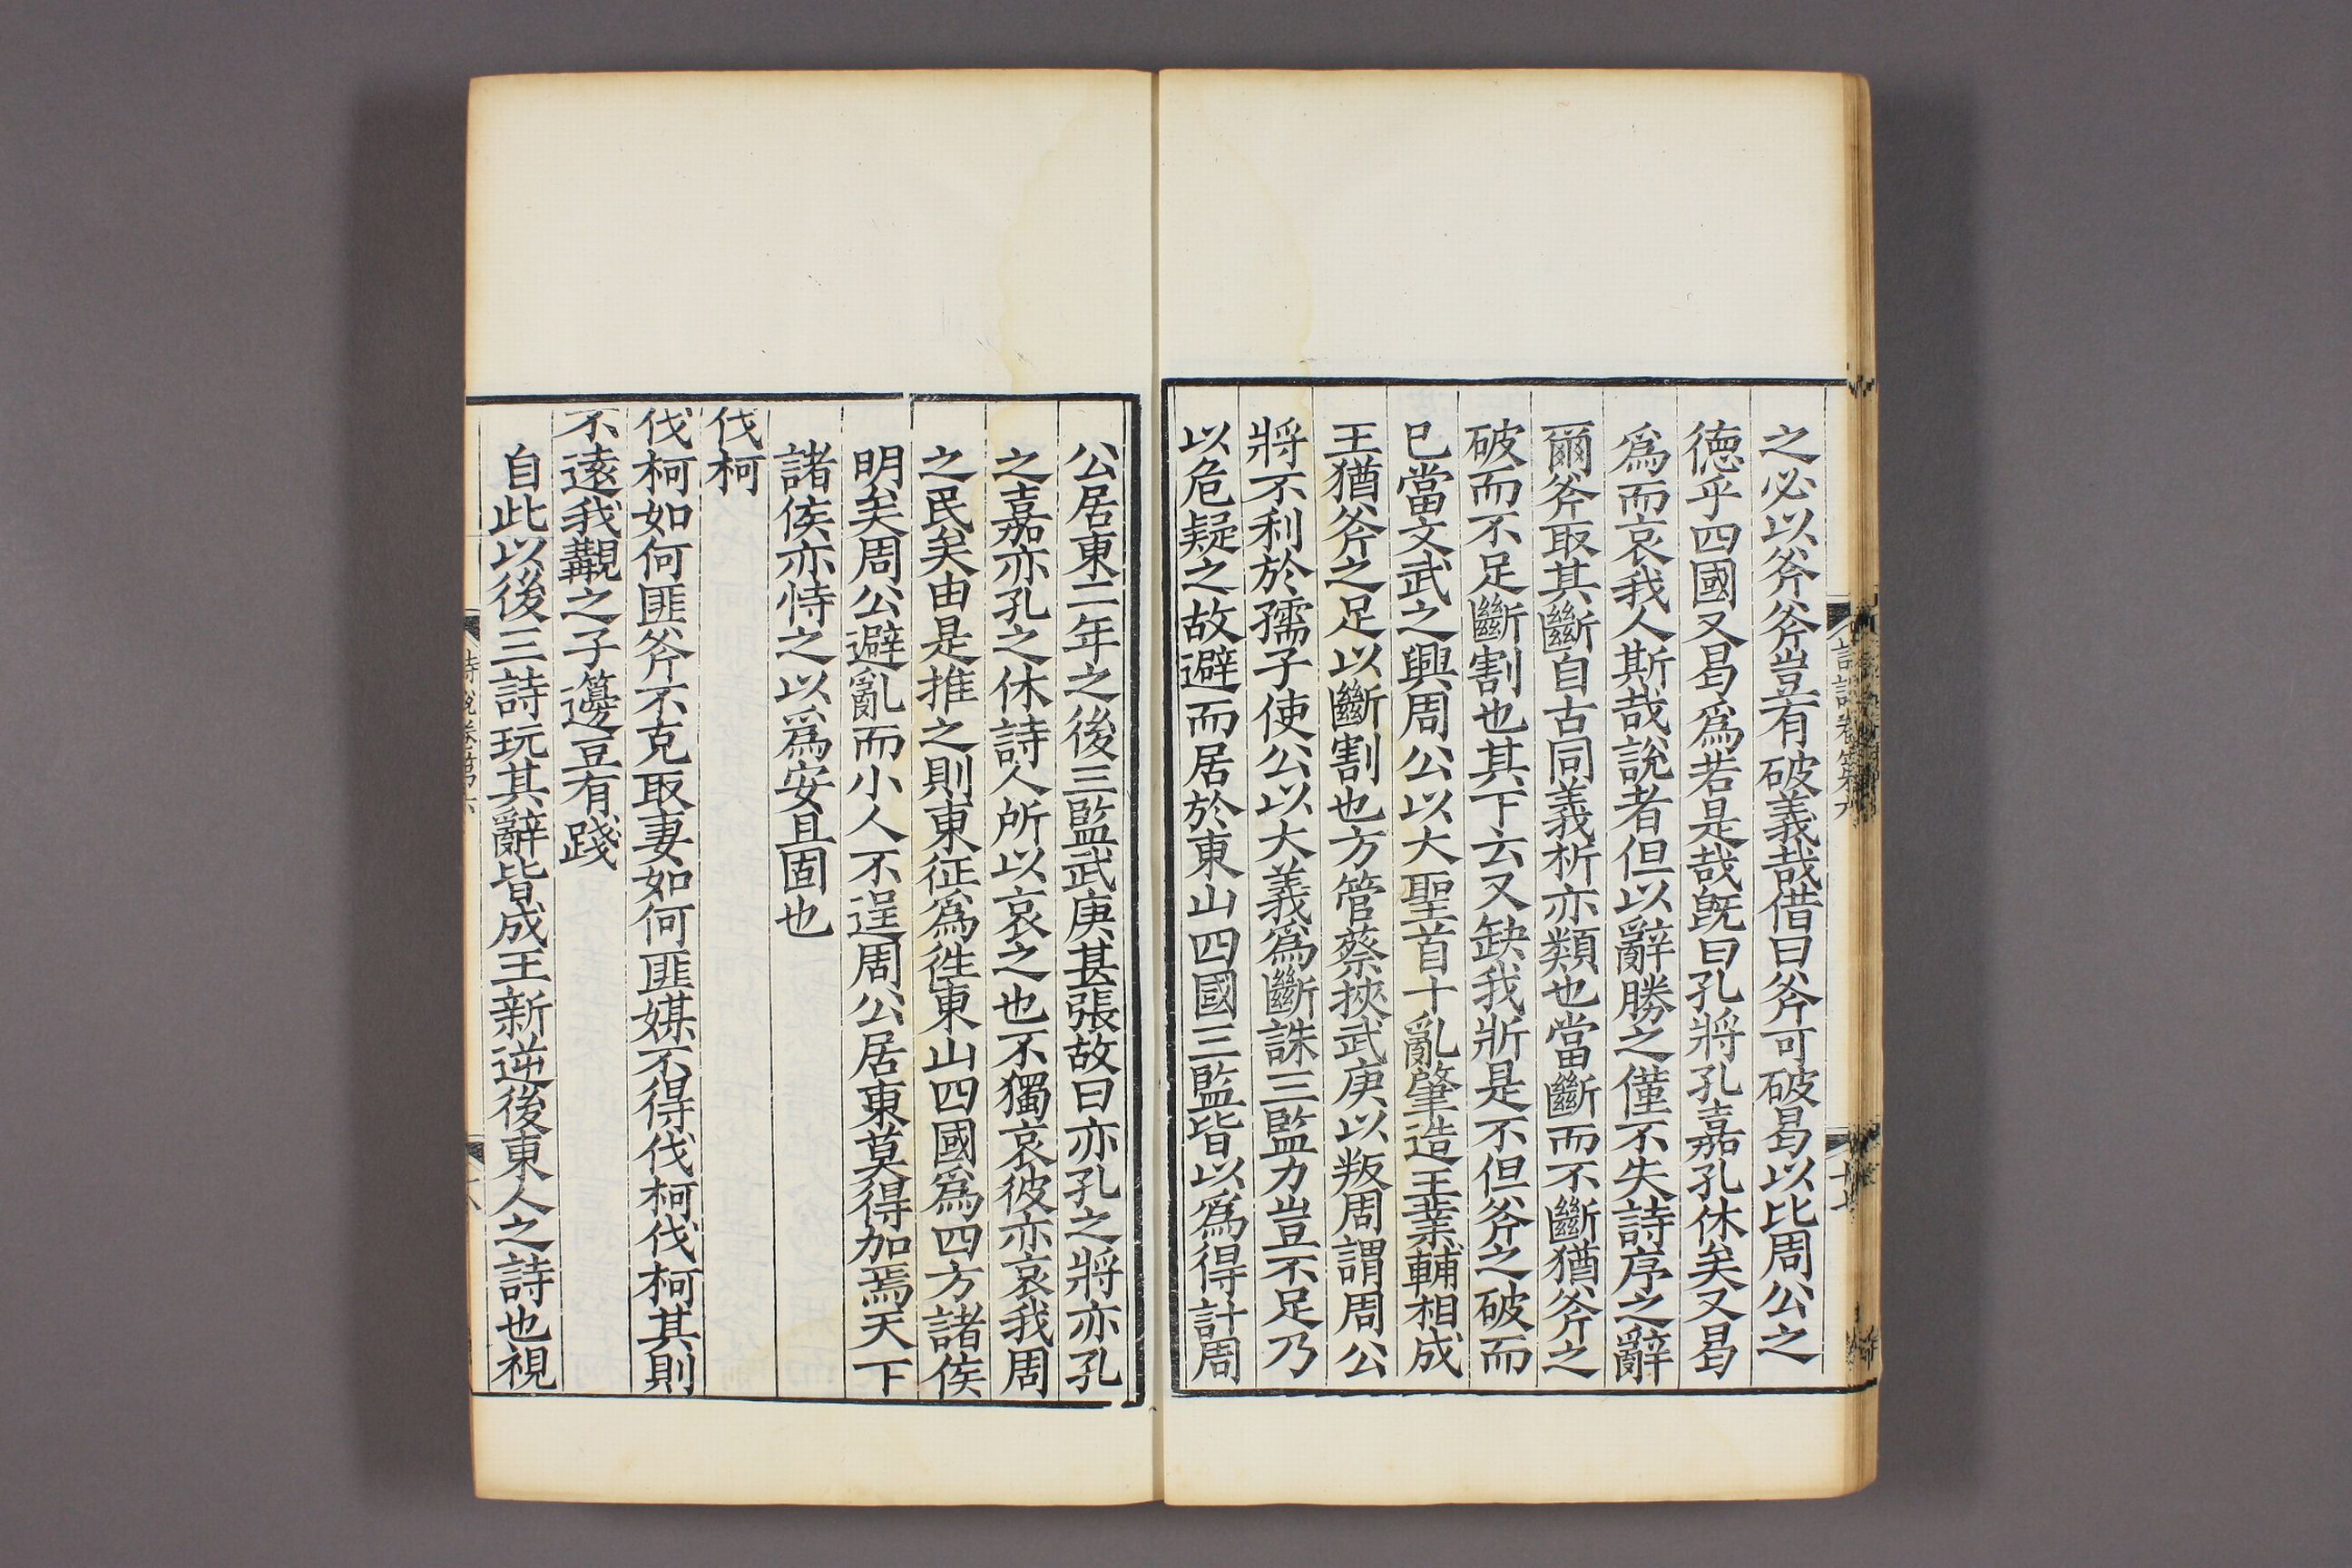 之必以斧斧豈有破義哉借曰斧可破曷以比周公之
德乎四國又曷爲若是哉旣曰孔將孔嘉孔休矣又曷
爲而哀我人斯哉說者但以辭勝之僅不失詩序之辭
爾斧取其斷自古同義析亦類也當斷而不斷猶斧之
破而不足斷割也其下云又缺我斨是不但斧之破而
已當文武之興周公以大聖首十亂肇造王業輔相成
王猶斧之足以斷割也方管蔡挾武庚以叛周謂周公
將不利於孺子使公以大義爲斷誅三監力豈不足乃
以危疑之故避而居於東山四國三監皆以爲得計周
公居東二年之後三監武庚甚張故曰亦孔之將亦孔
之嘉亦孔之休詩人所以哀之也不獨哀彼亦哀我周
之民矣由是推之則東征爲徃東山四國爲四方諸侯
明矣周公避亂而小人不逞周公居東莫得加焉天下
諸侯亦恃之以爲安且固也
伐柯
伐柯如何匪斧不克取妻如何匪媒不得伐柯伐柯其則
不遠我覯之子籩豆有踐
自此以後三詩玩其辭皆成王新逆後東人之詩也視
詩說卷第六